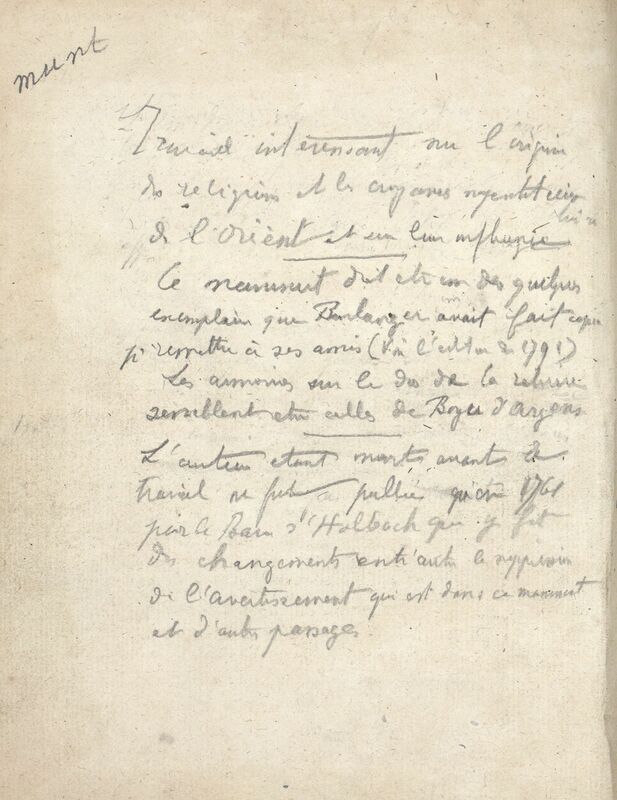 munt
Travail intéressant sur l'origine
des religions et les croyances superstitieuses
de l'Orient et leur influence
Ce manuscrit doit etre un des quelques
exemplaires que Boulanger avait fait copier
pr remettre à ses amis (Voir l'édition de 1791)
Les armoiries sur le dos de la reliure
semblent etre celles de Boyer d'argens
L'auteur etant mort avant le
travail ne fut publié qu'en 1761
par le Baron d'Holbach qui y fit
des changements entr'autres la suppression
de l'avertissement qui est dans ce manuscrit
et d'autres passages